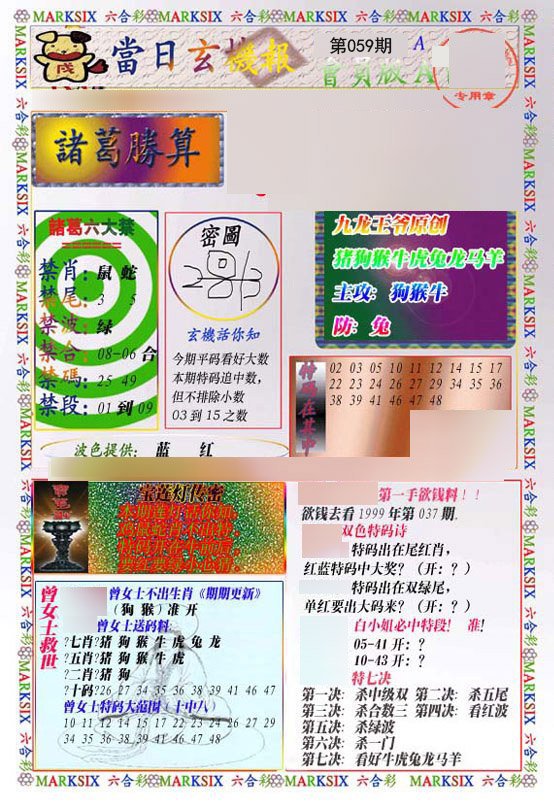 MARKSIX 六合彩 MARKSIX 六合彩 MARKSIX 六合彩 MARKSIX 六合彩
當日玄機報
第059期
A
會員版A
专用章
諸葛勝算
諸葛六大禁
禁肖：鼠 蛇
禁尾：3 5
禁波：绿
禁合：08-06 合
禁碼：25 49
禁段：01 到 09
密圖
玄機話你知
今期平码看好大数
本期特码追中数，
但不排除小数
03 到 15 之数
九龙王爷原创
猪狗猴牛虎兔龙马羊
主攻：狗猴牛
防：兔
02 03 05 10 11 12 14 15 17
22 23 24 26 27 29 34 35 36
38 39 41 46 47 48
波色提供： 蓝 红
宝莲灯传密
第一手欲钱料！！
欲钱去看 1999 年第 037 期.
双色特码诗
特码出在尾红肖，
红蓝特码中大奖？（开：？）
特码出在双绿尾，
单红要出大码来？（开：？）
白小姐必中特段！ 准！
05-41 开：？
10-43 开：？
特七决
第一决：杀中级双 第二决：杀五尾
第三决：杀合数三 第四决：看红波
第五决：杀绿波
第六决：杀一门
第七决：看好牛虎兔龙马羊
曾女士救世
曾女士不出生肖《期期更新》
（狗 猴）准 开
曾女士送码料：
?七肖?猪 狗 猴 牛 虎 兔 龙
?五肖?猪 狗 猴 牛 虎
?二肖?猪 狗
?十码?26 27 34 35 36 38 39 41 46 47
曾女士特码大范围（十中八）
10 11 12 14 15 17 22 23 24 26 27 29
34 35 36 38 39 41 46 47 48
MARKSIX 六合彩 MARKSIX 六合彩 MARKSIX 六合彩 MARKSIX 六合彩